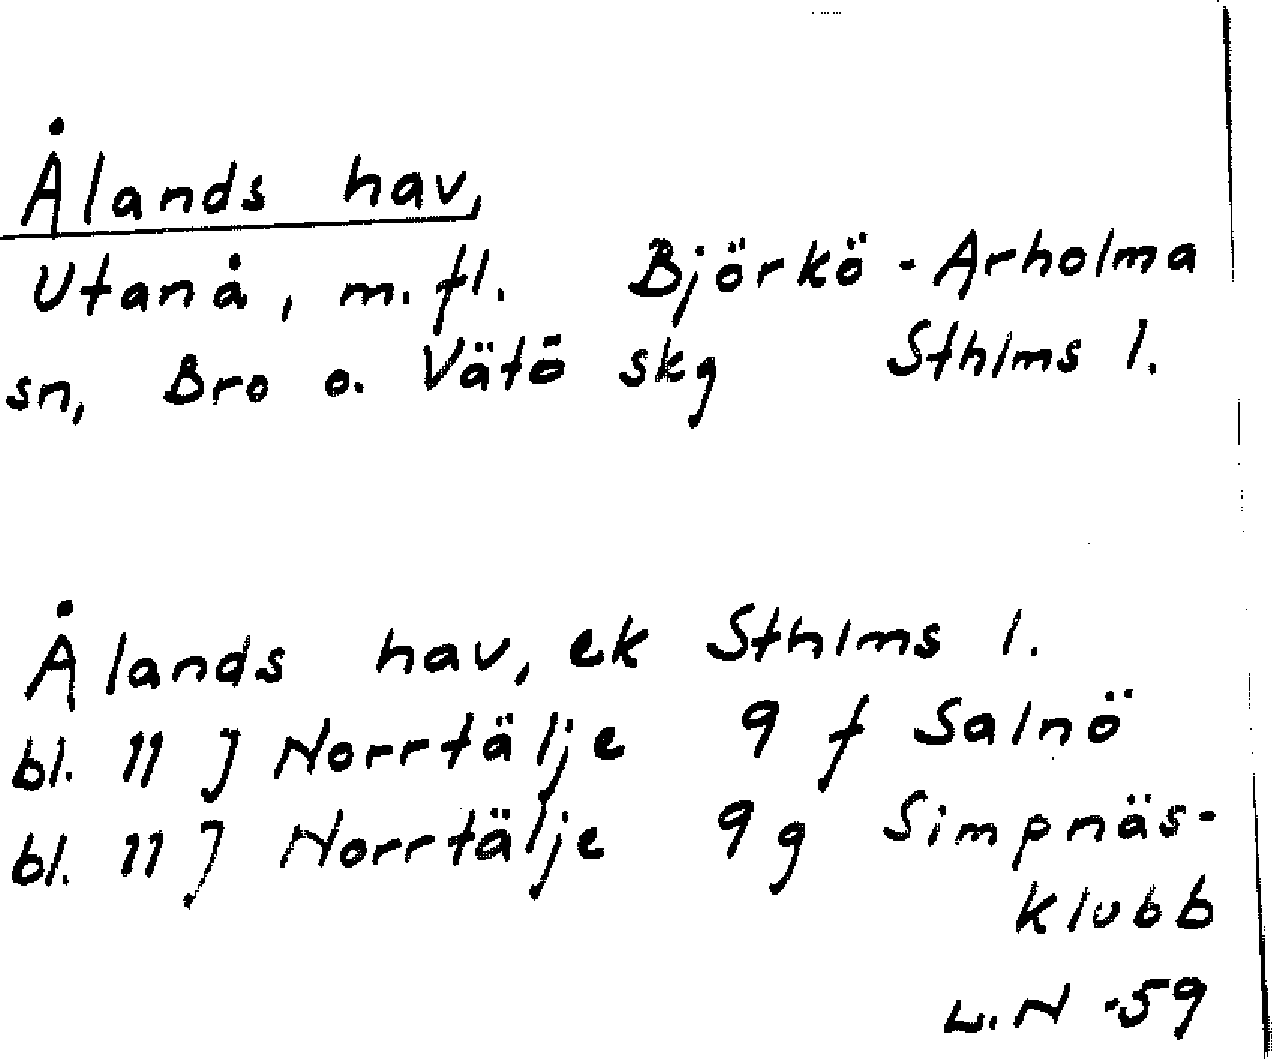 Ålands hav,
Utanå, m. fl. Björkö-Arholma
sn, Bro o. Vätö skg Sthlms l.
Ålands hav, ek Sthlms l.
bl. 11 J Norrtälje 9 f Salnö
bl. 11 J Norrtälje 9 g Simpnäs-
klubb
L.N -59